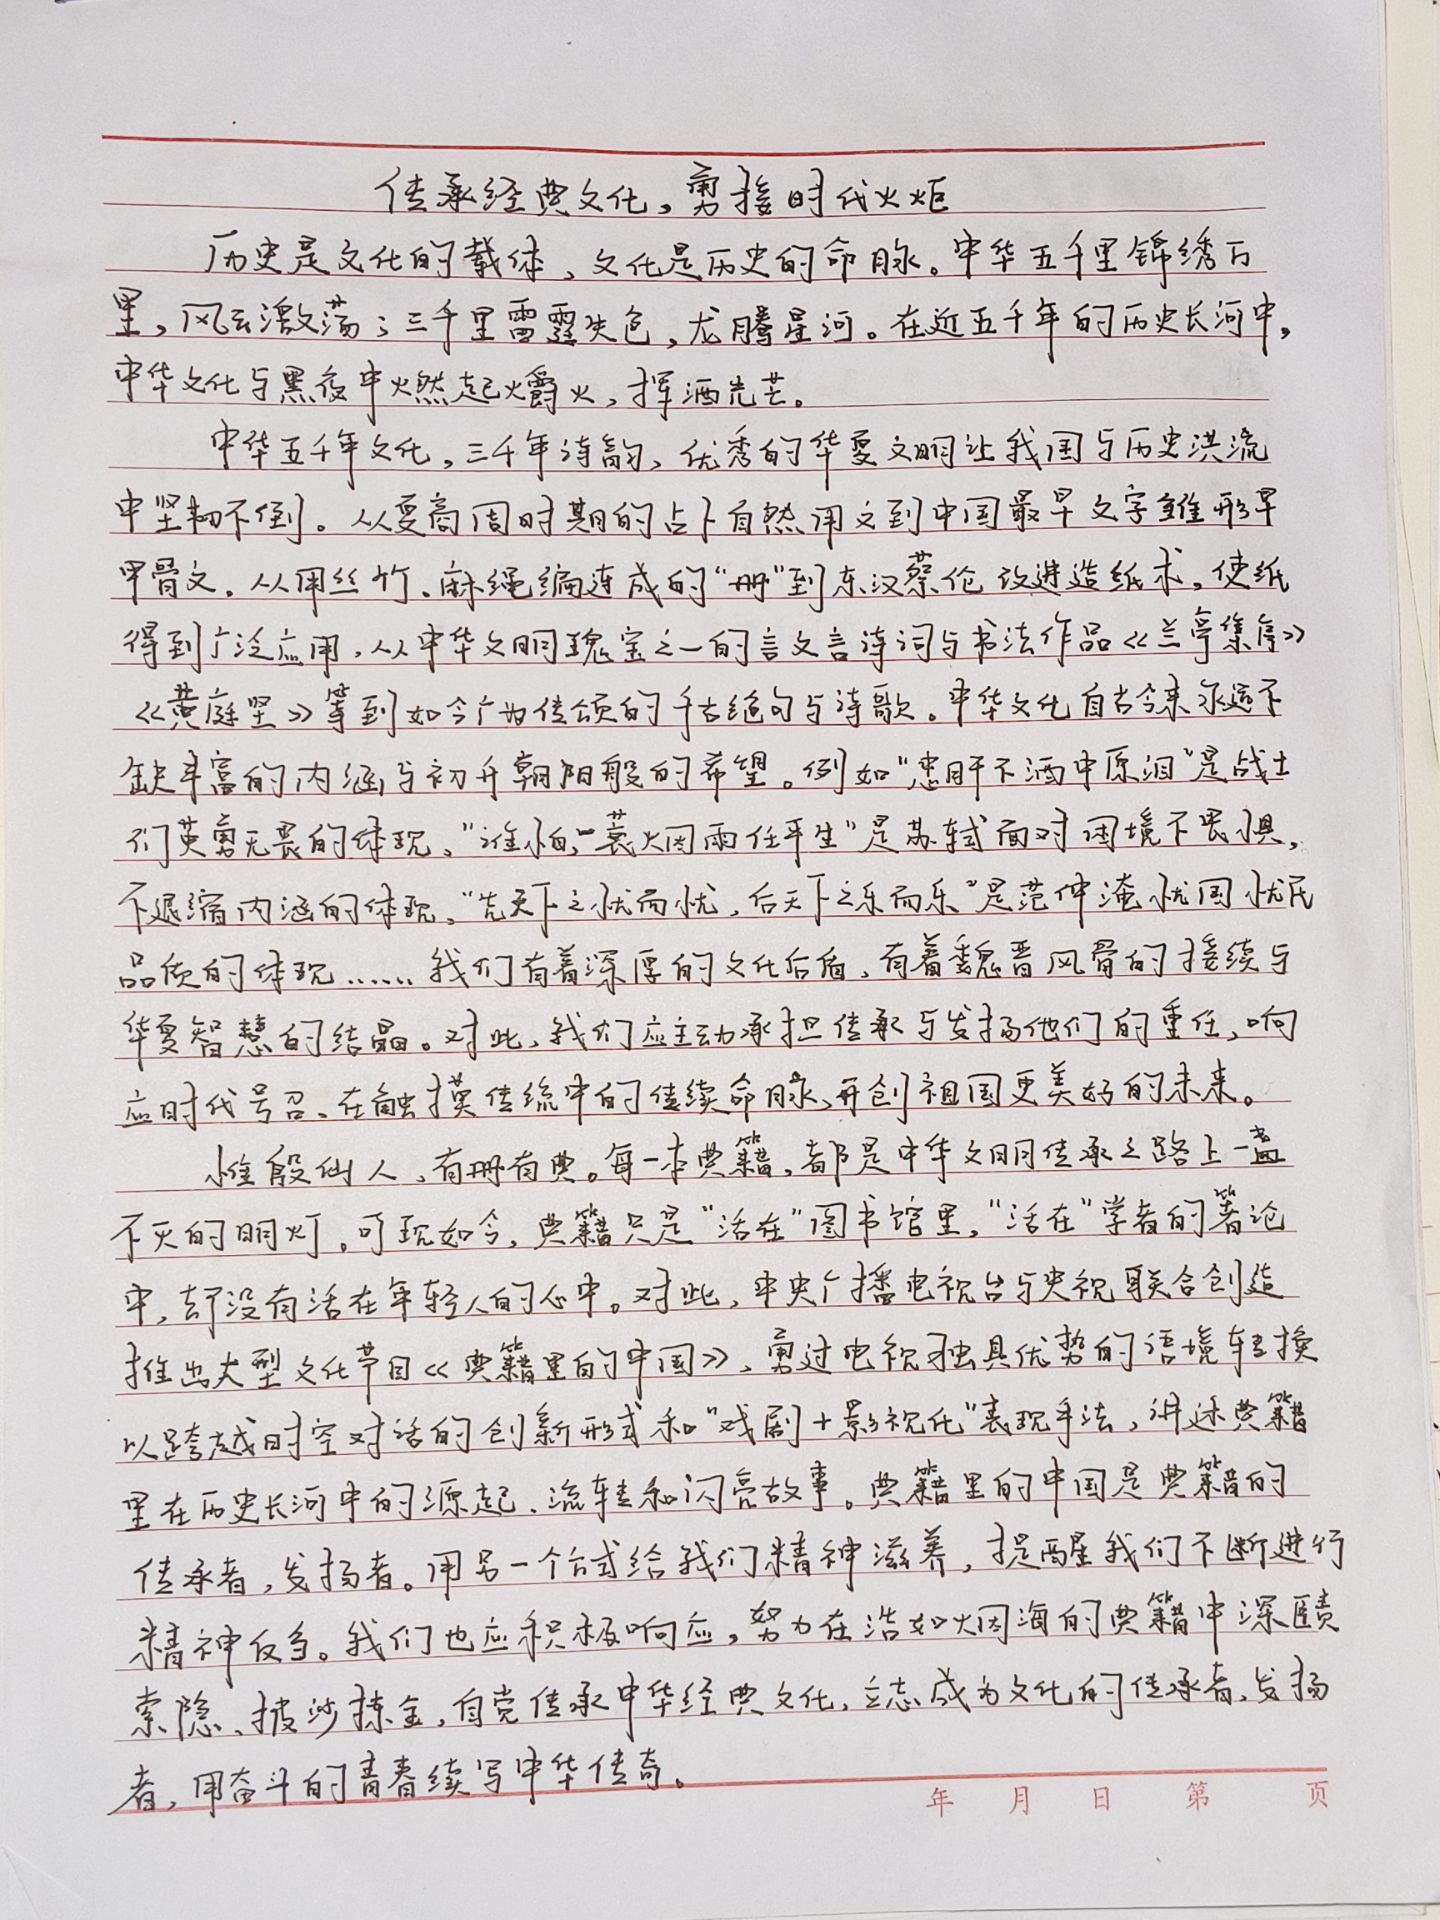 传承经典文化，勇接时代火炬
历史是文化的载体，文化是历史的命脉。中华五千里锦绣万
里，风云激荡；三千里雷霆失色，龙腾星河。在近五千年的历史长河中，
中华文化与黑夜中火燃起爝火，挥洒光芒。
中华五千年文化，三千年诗韵，优秀的华夏文明让我国与历史洪流
中坚韧不倒。从夏商周时期的占卜自然用文到中国最早文字雏形早
甲骨文。从用丝竹、麻绳编连成的“册”到东汉蔡伦改进造纸术，使纸
得到广泛应用，从中华文明瑰宝之一的言文言诗词与书法作品《兰亭集序》
《黄庭坚》等到如今广为传颂的千古绝句与诗歌。中华文化自古今来永远不
缺丰富的内涵与初升朝阳般的希望。例如“忠肝不洒中原泪”是战士
们英勇无畏的体现，“谁怕，一蓑烟雨任平生”是苏轼面对困境不畏惧，
不退缩内涵的体现，“先天下之忧而忧，后天下之乐而乐”是范仲淹忧国忧民
品质的体现……我们有着深厚的文化后盾，有着魏晋风骨的接续与
华夏智慧的结晶。对此，我们应主动承担传承与发扬他们的重任，响
应时代号召、在触摸传统中的传续命脉，再创祖国更美好的未来。
惟殷仙人，有册有典。每一本典籍，都是中华文明传承之路上一盏
不灭的明灯。可现如今，典籍只是“活在”图书馆里，“活在”学者的著论
中，却没有活在年轻人的心中。对此，中央广播电视台与央视联合创造
推出大型文化节目《典籍里的中国》，勇过电视独具优势的语境转换
以跨越时空对话的创新形式和“戏剧＋影视化”表现手法，讲述典籍
里在历史长河中的源起、流转和闪亮故事。典籍里的中国是典籍的
传承者，发扬者。用另一个方式给我们精神滋养，提醒我们不断进行
精神反刍。我们也应积极响应，努力在浩如烟海的典籍中深赜
索隐、披沙拣金，自觉传承中华经典文化，立志成为文化的传承者，发扬
者，用奋斗的青春续写中华传奇。
年 月 日 第 页